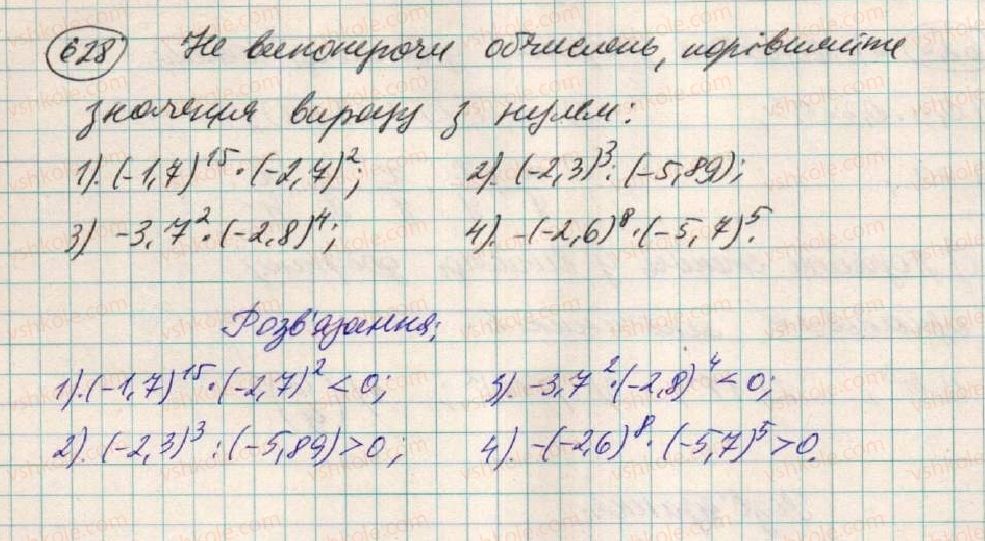 628 Не виконуючи обчислень, порівняйте
значення виразу з нулем:
1). (-1,7)¹⁵ · (-2,7)²; 2). (-2,3)³ : (-5,89);
3) -3,7² · (-2,8)⁴; 4). -(-2,6)⁸ · (-5,7)⁵.
Розв'язання:
1). (-1,7)¹⁵ · (-2,7)² < 0; 3). -3,7² · (-2,8)⁴ < 0;
2). (-2,3)³ : (-5,89) > 0; 4). -(-2,6)⁸ · (-5,7)⁵ > 0.